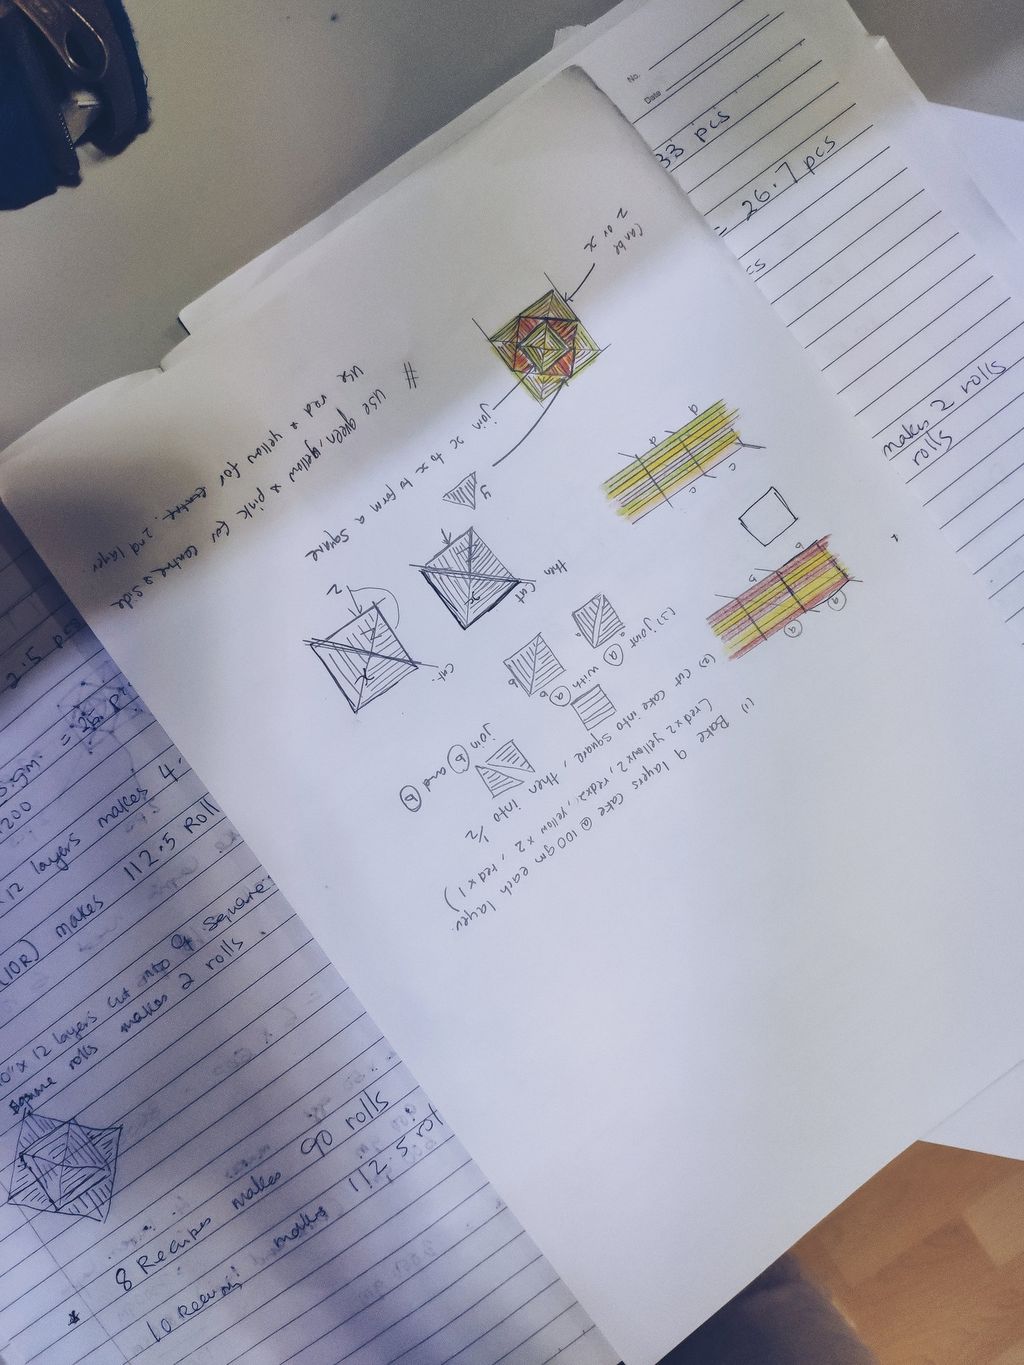 (1) Bake 9 layers cake @ 100gm each layer.
(red x2 yellow x2, red x2, yellow x 2, red x 1)
(2) cut cake into square, then into 1/2
(3) joint a with a
join b and b
a
a
b
b
c
c
d
d
a
a
b
b
then cut
cut.
x
x
Z
y
join x to x to form a square
can be
Z or x
# use green, yellow & pink for centre & side
use red & yellow for centre. 2nd layer
No.
Date
33 pcs
= 26.7 pcs
cs
makes 2 rolls
rolls
2.5 pcs
1200
x 12 layers makes 4.
(10R) makes 112.5 Roll
10" x 12 layers cut into 9 square.
square rolls makes 2 rolls.
8 Recipes makes 90 rolls
makes 112.5 rol